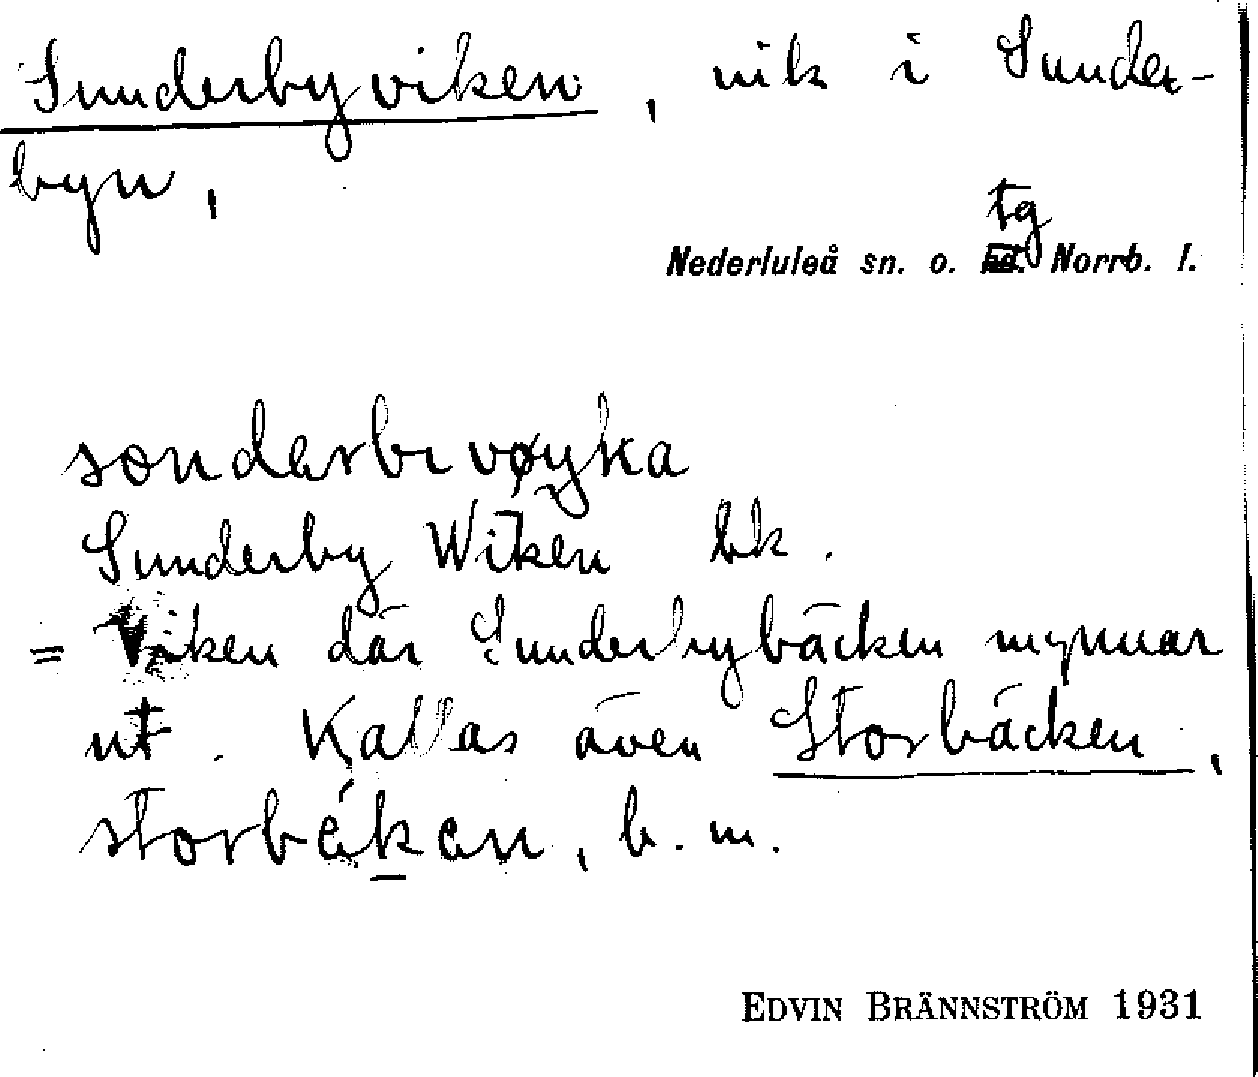 Sunderbyviken, vik i Sunder-
byn,
tg
Nederluleå sn. o. hd. Norrb. l.
sonderbivøyka
Sunderby Wiken bk.
= Viken där Sunderbybäcken mynnar
ut. Kallas även Storbäcken,
storbäken, b. m.
EDVIN BRÄNNSTRÖM 1931